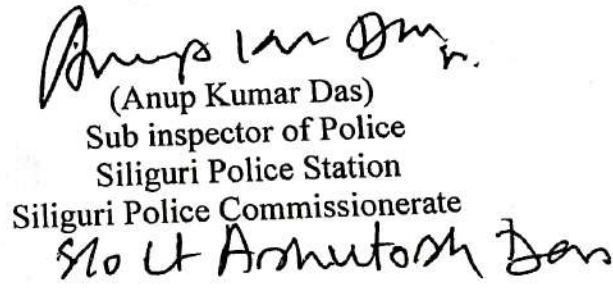 Anup Kr Das
(Anup Kumar Das)
Sub inspector of Police
Siliguri Police Station
Siliguri Police Commissionerate
S/o Lt Ashutosh Das